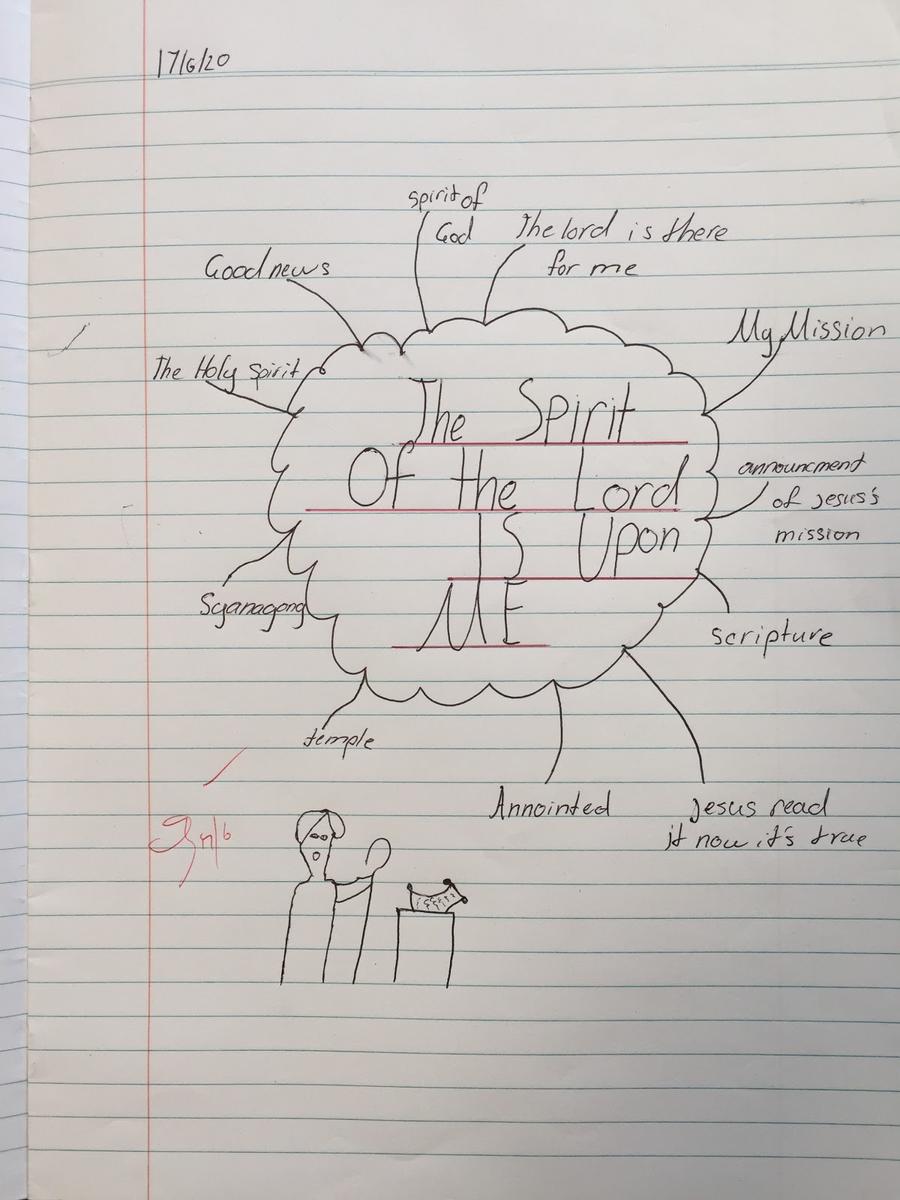 17/6/20
spirit of
God
The lord is there
for me
Good news
My Mission
The Holy Spirit
The Spirit
Of the Lord
IS Upon
ME
announcment
of Jesus's
mission
Syanagong
scripture
temple
Annointed
Jesus read
it now it's true